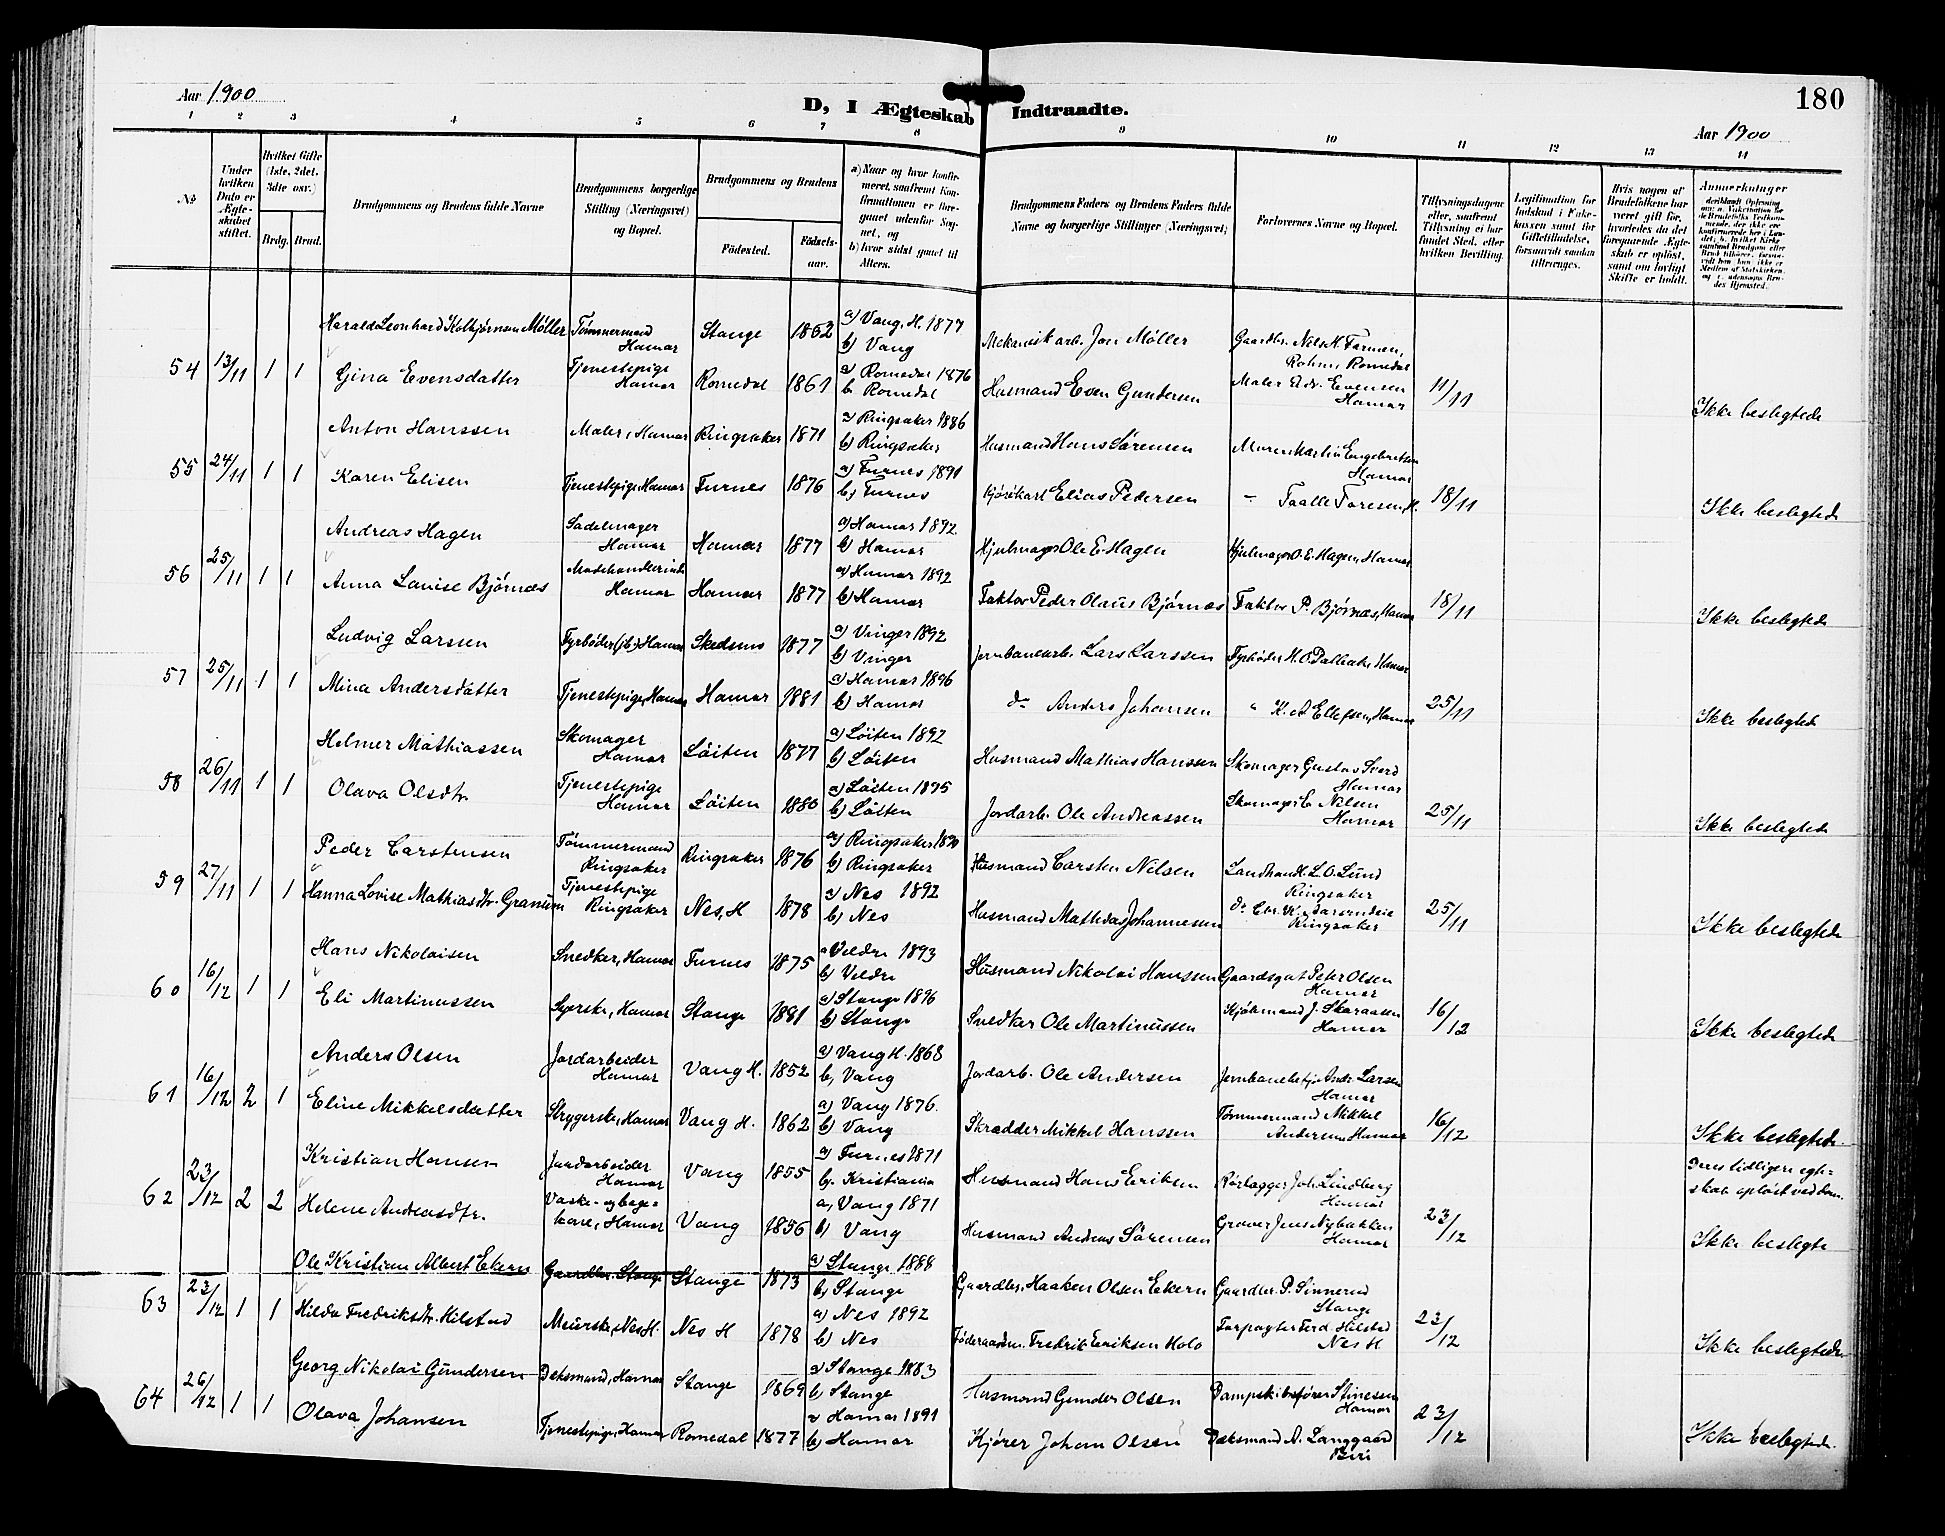 Aar 1900
D, I Ægteskab Indtraadte.
180
Aar 1900
1 2 3 4 5 6 7 8 9 10 11 12 13 14
No
Under hvilken Dato er Ægteskabet stiftet.
Hvilket Gifte (1ste, 2det, 3dte osv.)
Brdg. Brud.
Brudgommens og Brudens fulde Navne
Brudgommens borgerlige Stilling (Næringsvei) og Bopæl.
Brudgommens og Brudens
Fødested.
Fødselsaar.
a) Naar og hvor konfirmeret, saafremt Konfirmationen er foregaaet udenfor Sognet, og
b) hvor sidst gaaet til Alters.
Brudgommens Faders og Brudens Faders fulde Navne og borgerlige Stillinger (Næringsvei)
Forlovernes Navne og Bopæl.
Tillysningsdagene eller, saafremt Tillysning ei har fundet Sted, efter hvilken Bevilling.
Legitimation for Indskud i Enkekassen samt for Giftetilladelse, forsaavidt saadan tiltrænges.
Hvis nogen af Brudefolkene har været gift før, hvorledes da det foregaaende Ægteskab er opløst, samt om lovligt Skifte er holdt.
Anmerkninger
54 13/11 1 1
Harald Leonhard Kolbjørnsen Møller Tømmermand Hamar Stange 1862 a) Vang, H. 1877 b) Vang Mekanisk arb. Jon Møller Gaardbr. Nils H. Farmen, Romedal
Gina Evensdatter Tjenestepige Hamar Romedal 1861 a) Romedal 1876 b Romedal Husmand Even Gundersen Maler Edv. Evensen Hamar 11/11 Ikke beslegtede
55 24/11 1 1
Anton Hanssen Maler, Hamar Ringsaker 1871 a) Ringsaker 1886 b) Ringsaker Husmand Hans Sørensen Murer Martin Engebretsen Hamar
Karen Elisen Tjenestepige, Hamar Furnes 1876 a) Furnes 1891 b) Furnes Kjørekarl Elias Pedersen - Taalle Toresen, H. 18/11 Ikke beslegtede
56 25/11 1 1
Andreas Hagen Sadelmager Hamar Hamar 1877 a) Hamar 1892 b) Hamar Hjulmager Ole E. Hagen Hjulmager O. E. Hagen, Hamar
Anna Louise Bjørnæs Modehandlerinde Hamar Hamar 1877 a) Hamar 1892 b) Hamar Faktor Peder Olaus Bjørnæs Faktor P. Bjørnæs, Hamar 18/11 Ikke beslegtede
57 25/11 1 1
Ludvig Larssen Fyrbøder (jb.) Hamar Skedsmo 1877 a) Vinger 1892 b) Vinger Jernbanearb. Lars Larssen Fyrbøder H. O. Hamar
Mina Andersdatter Tjenestepige, Hamar Hamar 1881 a) Hamar 1896 b) Hamar do Anders Johansen " K. A. Ellefsen, Hamar 25/11 Ikke beslegtede
58 26/11 1 1
Helmer Mathiassen Skomager Hamar Løiten 1877 a) Løiten 1892 b) Løiten Husmand Mathias Hanssen Skomager Gustav Sverd Hamar
Olava Olsdtr. Tjenestepige Hamar Løiten 1880 a) Løiten 1895 b) Løiten Jordarb. Ole Andreassen Skomager E. Nilsen Hamar 25/11 Ikke beslegtede
59 27/11 1 1
Peder Carstensen Tømmermand Ringsaker Ringsaker 1876 a) Ringsaker 1890 b) Ringsaker Husmand Carsten Nilsen Landhan. H. L. O. Lund Ringsaker
Hanna Lovise Mathiasdtr. Granum Tjenestepige Ringsaker Nes, H 1878 a) Nes 1892 b) Nes Husmand Mathias Johannesen do Chr. K. Ringsaker 25/11 Ikke beslegtede
60 16/12 1 1
Hans Nikolaisen Snedker, Hamar Furnes 1875 a Veldre 1893 b) Veldre Husmand Nikolai Hanssen Gaardsgut Peter Olsen Hamar
Eli Martinussen Syerske, Hamar Stange 1881 a) Stange 1896 b) Stange Snedker Ole Martinussen Kjøbmand J. Skaraasen Hamar 16/12 Ikke beslegtede
61 16/12 2 1
Anders Olsen Jordarbeider Hamar Vang H. 1852 a) Vang H. 1868 b, Vang Jordarb. Ole Andersen Jernbanebetj. Andr. Larsen Hamar
Eline Mikkelsdatter Strygerske, Hamar Vang H. 1862 a) Vang 1876. b) Vang Skrædder Mikkel Hanssen Tømmermand Mikkel Andersen, Hamar 16/12 Ikke beslegtede
62 23/12 2 2
Kristian Hansen Jordarbeider Hamar Vang 1855 a) Furnes 1871 b. Kristiania Husmand Hans Eriksen Rørlægger Joh. Lindberg Hamar Deres tidligere egteskab opløst ved dom.
Helene Andreasdtr. Vaske- og bagekone, Hamar Vang 1856 a, Vang 1871 b) Vang Husmand Andreas Sørensen Graver Jens Nybakken Hamar 23/12 Ikke beslegte
63 23/12 1 1
Ole Kristian Albert Ekern Gaardbr. Stange Stange 1873 a) Stange 1888 b) Stange Gaardbr. Haaken Olsen Ekern Gaardbr. P. Sinnerud Stange
Hilda Fredriksdtr. Hilstad Meierske, Nes H. Nes H 1878 a) Nes 1892 b) Nes Føderaadsm. Fredrik Eriksen Holo Forpagter Ferd. Hilstad Nes H. 23/12 Ikke beslegtede
64 26/12 1 1
Georg Nikolai Gundersen Dæksmand, Hamar Stange 1869 a) Stange 1883 b) Stange Husmand Gunder Olsen Dampskibsfører Stinessen Hamar
Olava Johansen Tjenestepige, Hamar Romedal 1877 a) Hamar 1891 b) Hamar Kjører Johan Olsen Dæksmand A. Langgaard Biri 23/12 Ikke beslegtede.